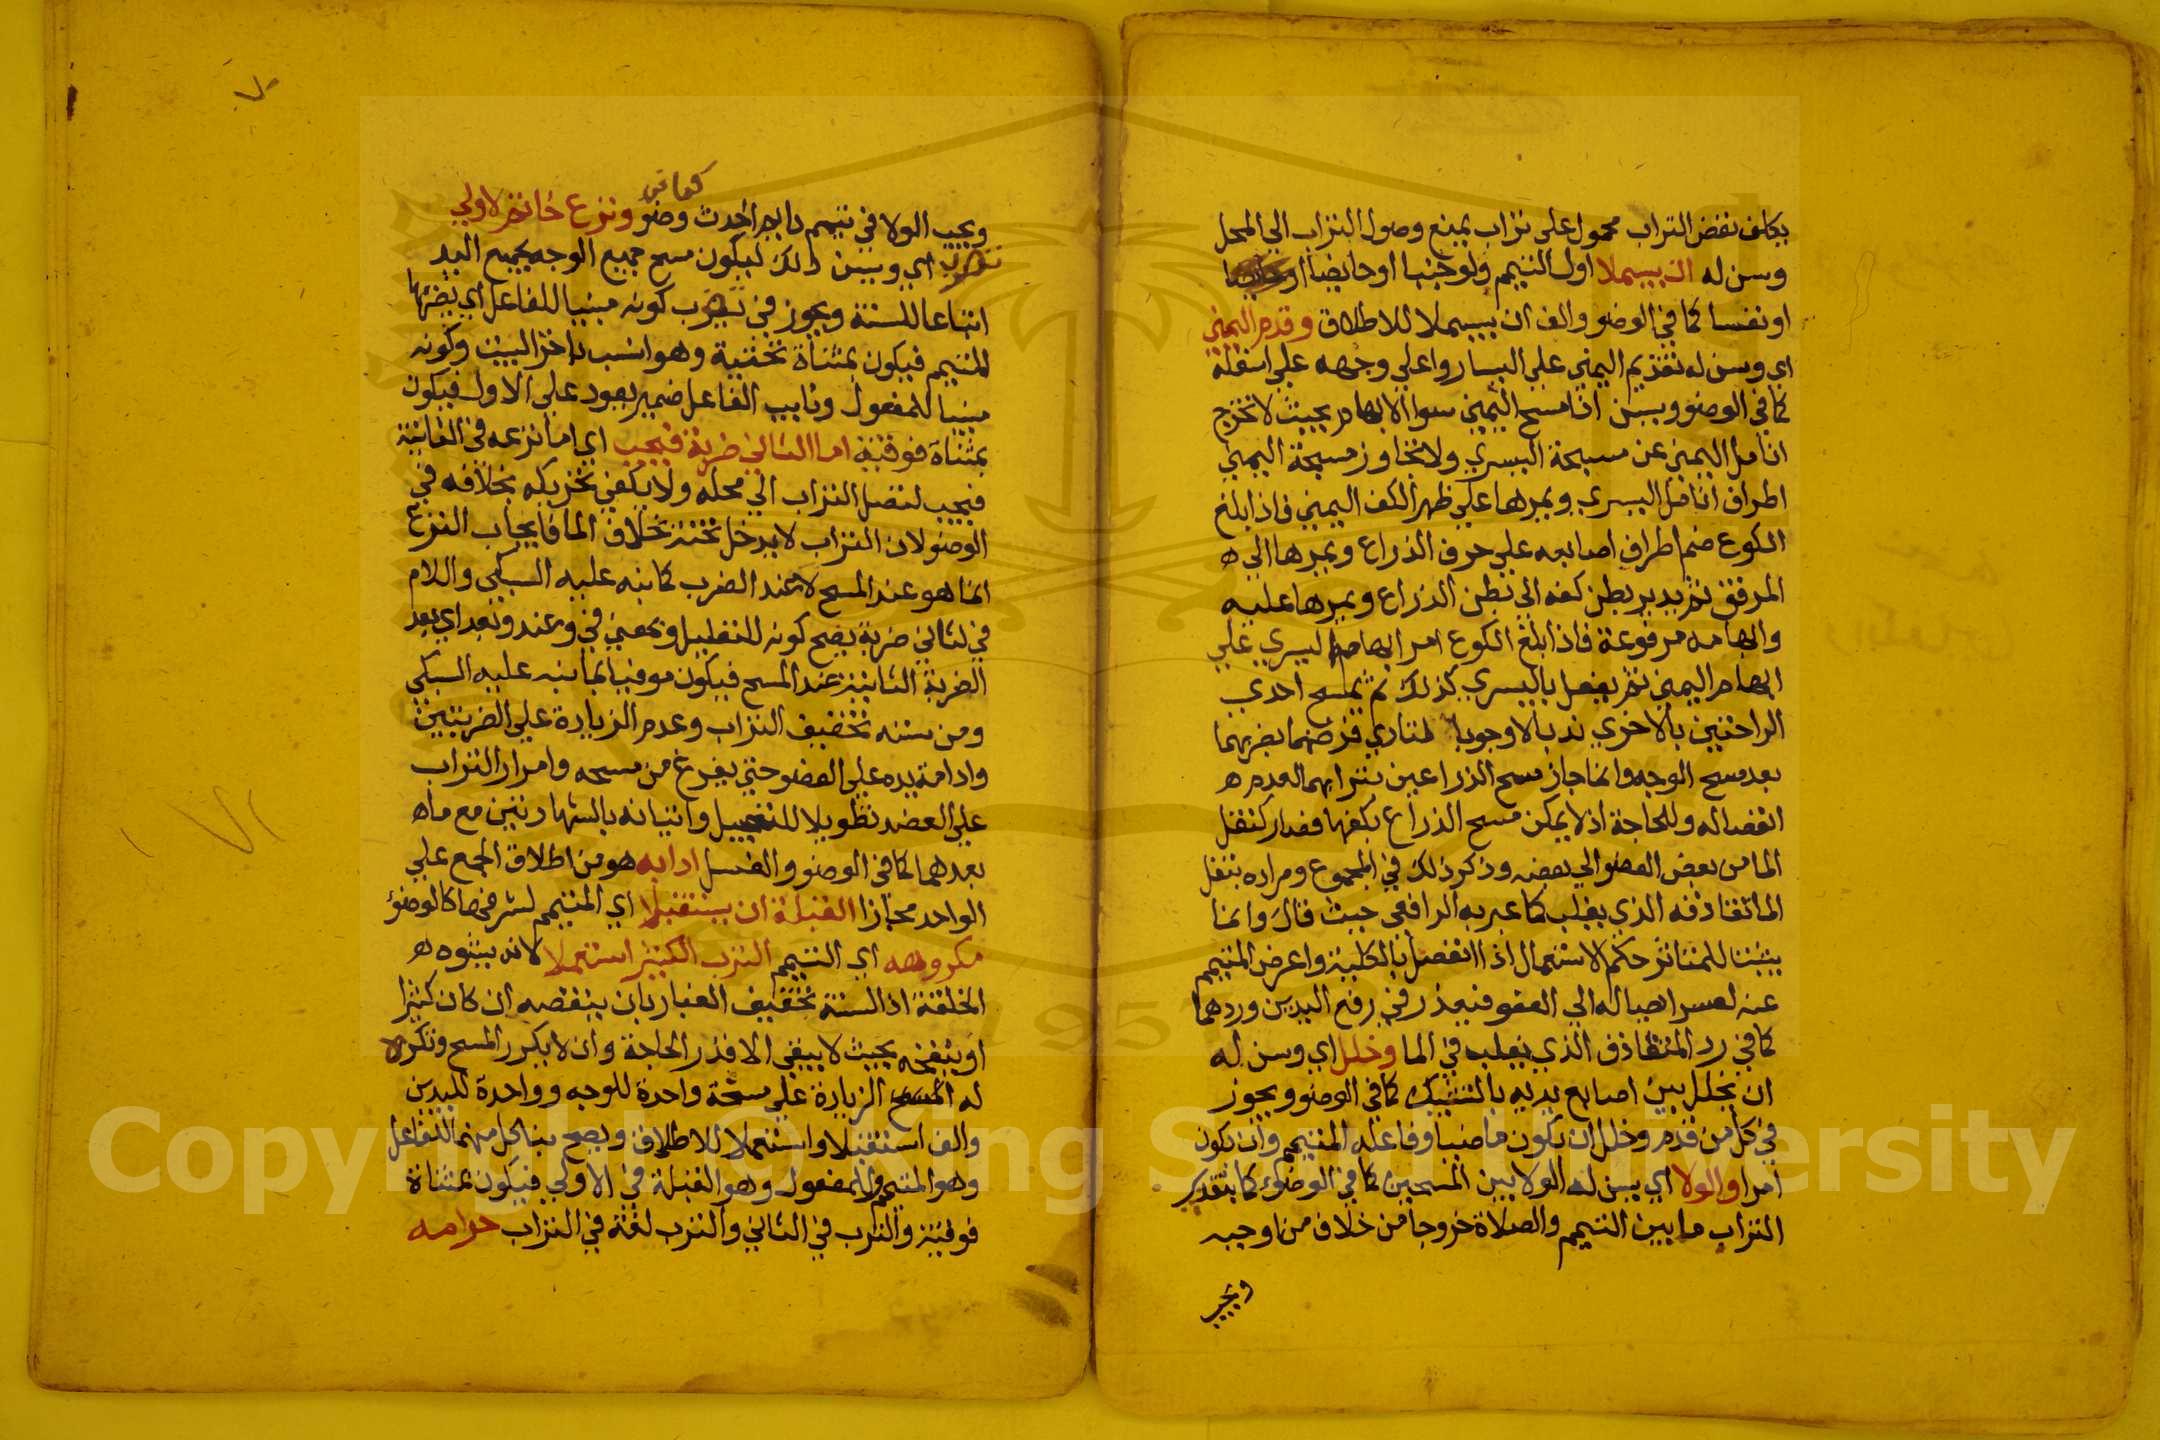 بكلف نفض التراب محمول على تراب يمنع وصول التراب الى المحل
وسن له ان يبسملا اول التيمم ولو جنبا او حايضا او
او نفسا كما في الوضو والف ان يبسملا للاطلاق وقدم اليمني
اي وسن له تقديم اليمني على اليسار واعلي وجهه علي اسفله
كما في الوضو ويسن اذا مسح اليمين سوا الابهام بحيث لا تخرج
انامل اليمني عن مسبحة اليسري ولا تجاوز مسبحة اليمني
اطراف انامل اليسري ويمرها علي ظهر الكف اليمني فاذا بلغ
الكوع ضم اطراف اصابعه علي حرف الذراع ويمرها الي ه
المرفق ثم يدير بطن كفه الي بطن الذراع ويمرها عليه
وابهامه مرفوعة فاذا بلغ الكوع امر ابهام اليسري علي
ابهام اليمني ثم يفعل باليسري كذلك ثم يمسح احدي
الراحتين بالاخري ندبا لا وجوبا لتادي فرضهما بضربهما
بعد مسح الوجه وانما جاز مسح الذراعين بترابهما لعدم ه
انفصاله وللحاجة اذ لا يمكن مسح الذراع بكفها فصار كنقل
الما من بعض العضو الي بعضه وذكر ذلك في المجموع ومراده بنقل
الما تقاذفه الذي يغلب كما عبر به الرافعي حيث قال وانما
يثبت للمتناثر حكم الاستعمال اذا انفصل بالكلية واعرض المتيمم
عنه لعسر ايصاله الي العضو فيعذر في رفع اليدين وردهما
كما في رد المتقاذف الذي يغلب في الما وخلل اي وسن له
ان يخلل بين اصابع يديه بالتشبيك كما في الوضو ويجوز
في كل من قدم وخلل ان يكون ماضيا وفاعله المتيمم وان يكون
امرا والولا اي يسن له الولا بين المسحين كما في الوضوء كما بتقدير
التراب ما بين التيمم والصلاة خروجا من خلاف من اوجبه
ويجب
ويجب الولا في تيمم دايم الحدث وضو ونزع خاتم لاولي
تضرب اي ويسن ذلك ليكون مسح جميع الوجه بجميع اليد
اتباعا للسنة ويجوز في تضرب كونه مبنيا للفاعل اي يضربها
المتيمم فيكون بمثناة تحتية وهو انسب باخر البيت وكونه
مبنيا للمفعول ونايب الفاعل ضمير يعود على الاول فيكون
بمثناة فوقية اما لثاني ضربة فيجب اي اما نزعه في الثانية
فيجب لتصل التراب الي محله ولا يكفي تحريكه بخلافه في
الوضو لان التراب لا يدخل تحته بخلاف الما فايجاب النزع
انما هو عند المسح لا عند الضرب كما نبه عليه السبكي واللام
في لثاني ضربة يصح كونه للتعليل وبمعني في وعند وبعد اي بعد
الضربة الثانية عند المسح فيكون موفيا بما نبه عليه السبكي
ومن سننه تخفيف التراب وعدم الزيادة علي الضربتين
وادامة يده علي العضو حتي يفرغ من مسحه وامرار التراب
علي العضد تطويلا للتحجيل واتيانه بالشهادتين مع ما ه
بعدهما كما في الوضو والغسل ادابه هو من اطلاق الجمع علي
الواحد مجازا القبلة ان يستقبلا اي المتيمم لشرفها كالوضوء
مكروهه اي التيمم الترب الكثير استعملا لانه يشوه ه
الخلقة اذ السنة تخفيف الغبار بان ينفضه ان كان كثيرا
او ينفخه بحيث لا يبقي الا قدر الحاجة وان لا يكرر المسح وتكره
له الزيادة علي مسحة واحدة للوجه وواحدة لليدين
والف استقبلا واستعملا للاطلاق ويصح بنا كل منهما للفاعل
وهو المتيمم وللمفعول وهو القبلة في الاولي فيكون بمثناة
فوقية والترب في الثاني والترب لغة في التراب حرامه